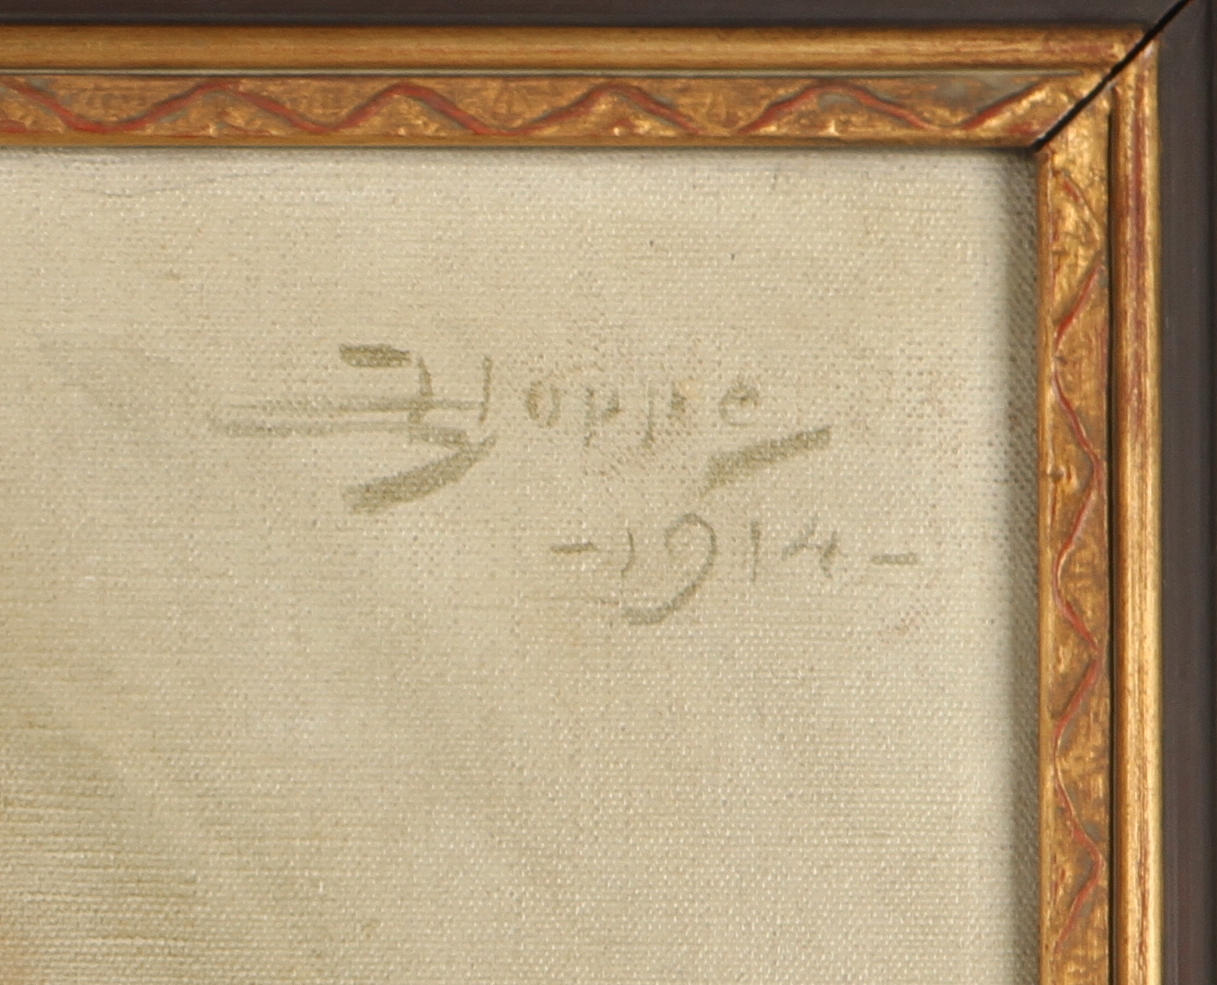 Hoppe
-1914-